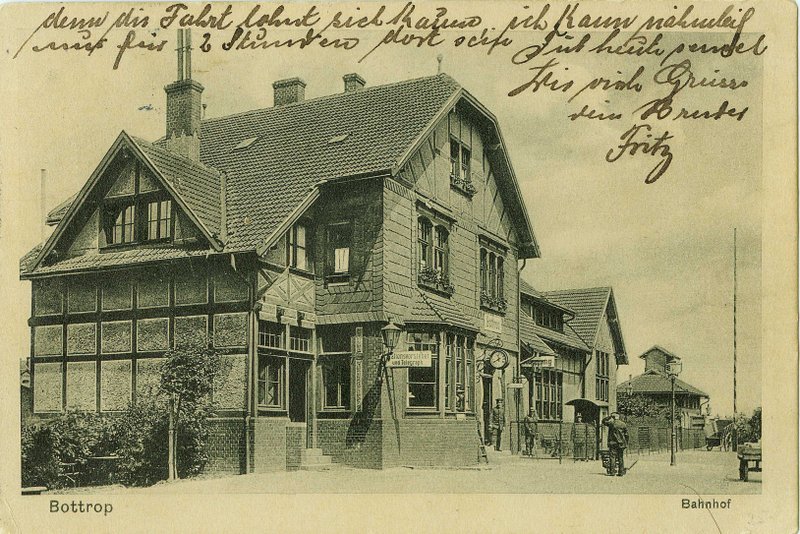 denn die Fahrt lohnt sich kaum, ich kann nähmlich
nur für 2 Stunden dort sein
Gut heute
viele Grüsse
dein Bruder
Fritz
und Telegraph
Bottrop
Bahnhof